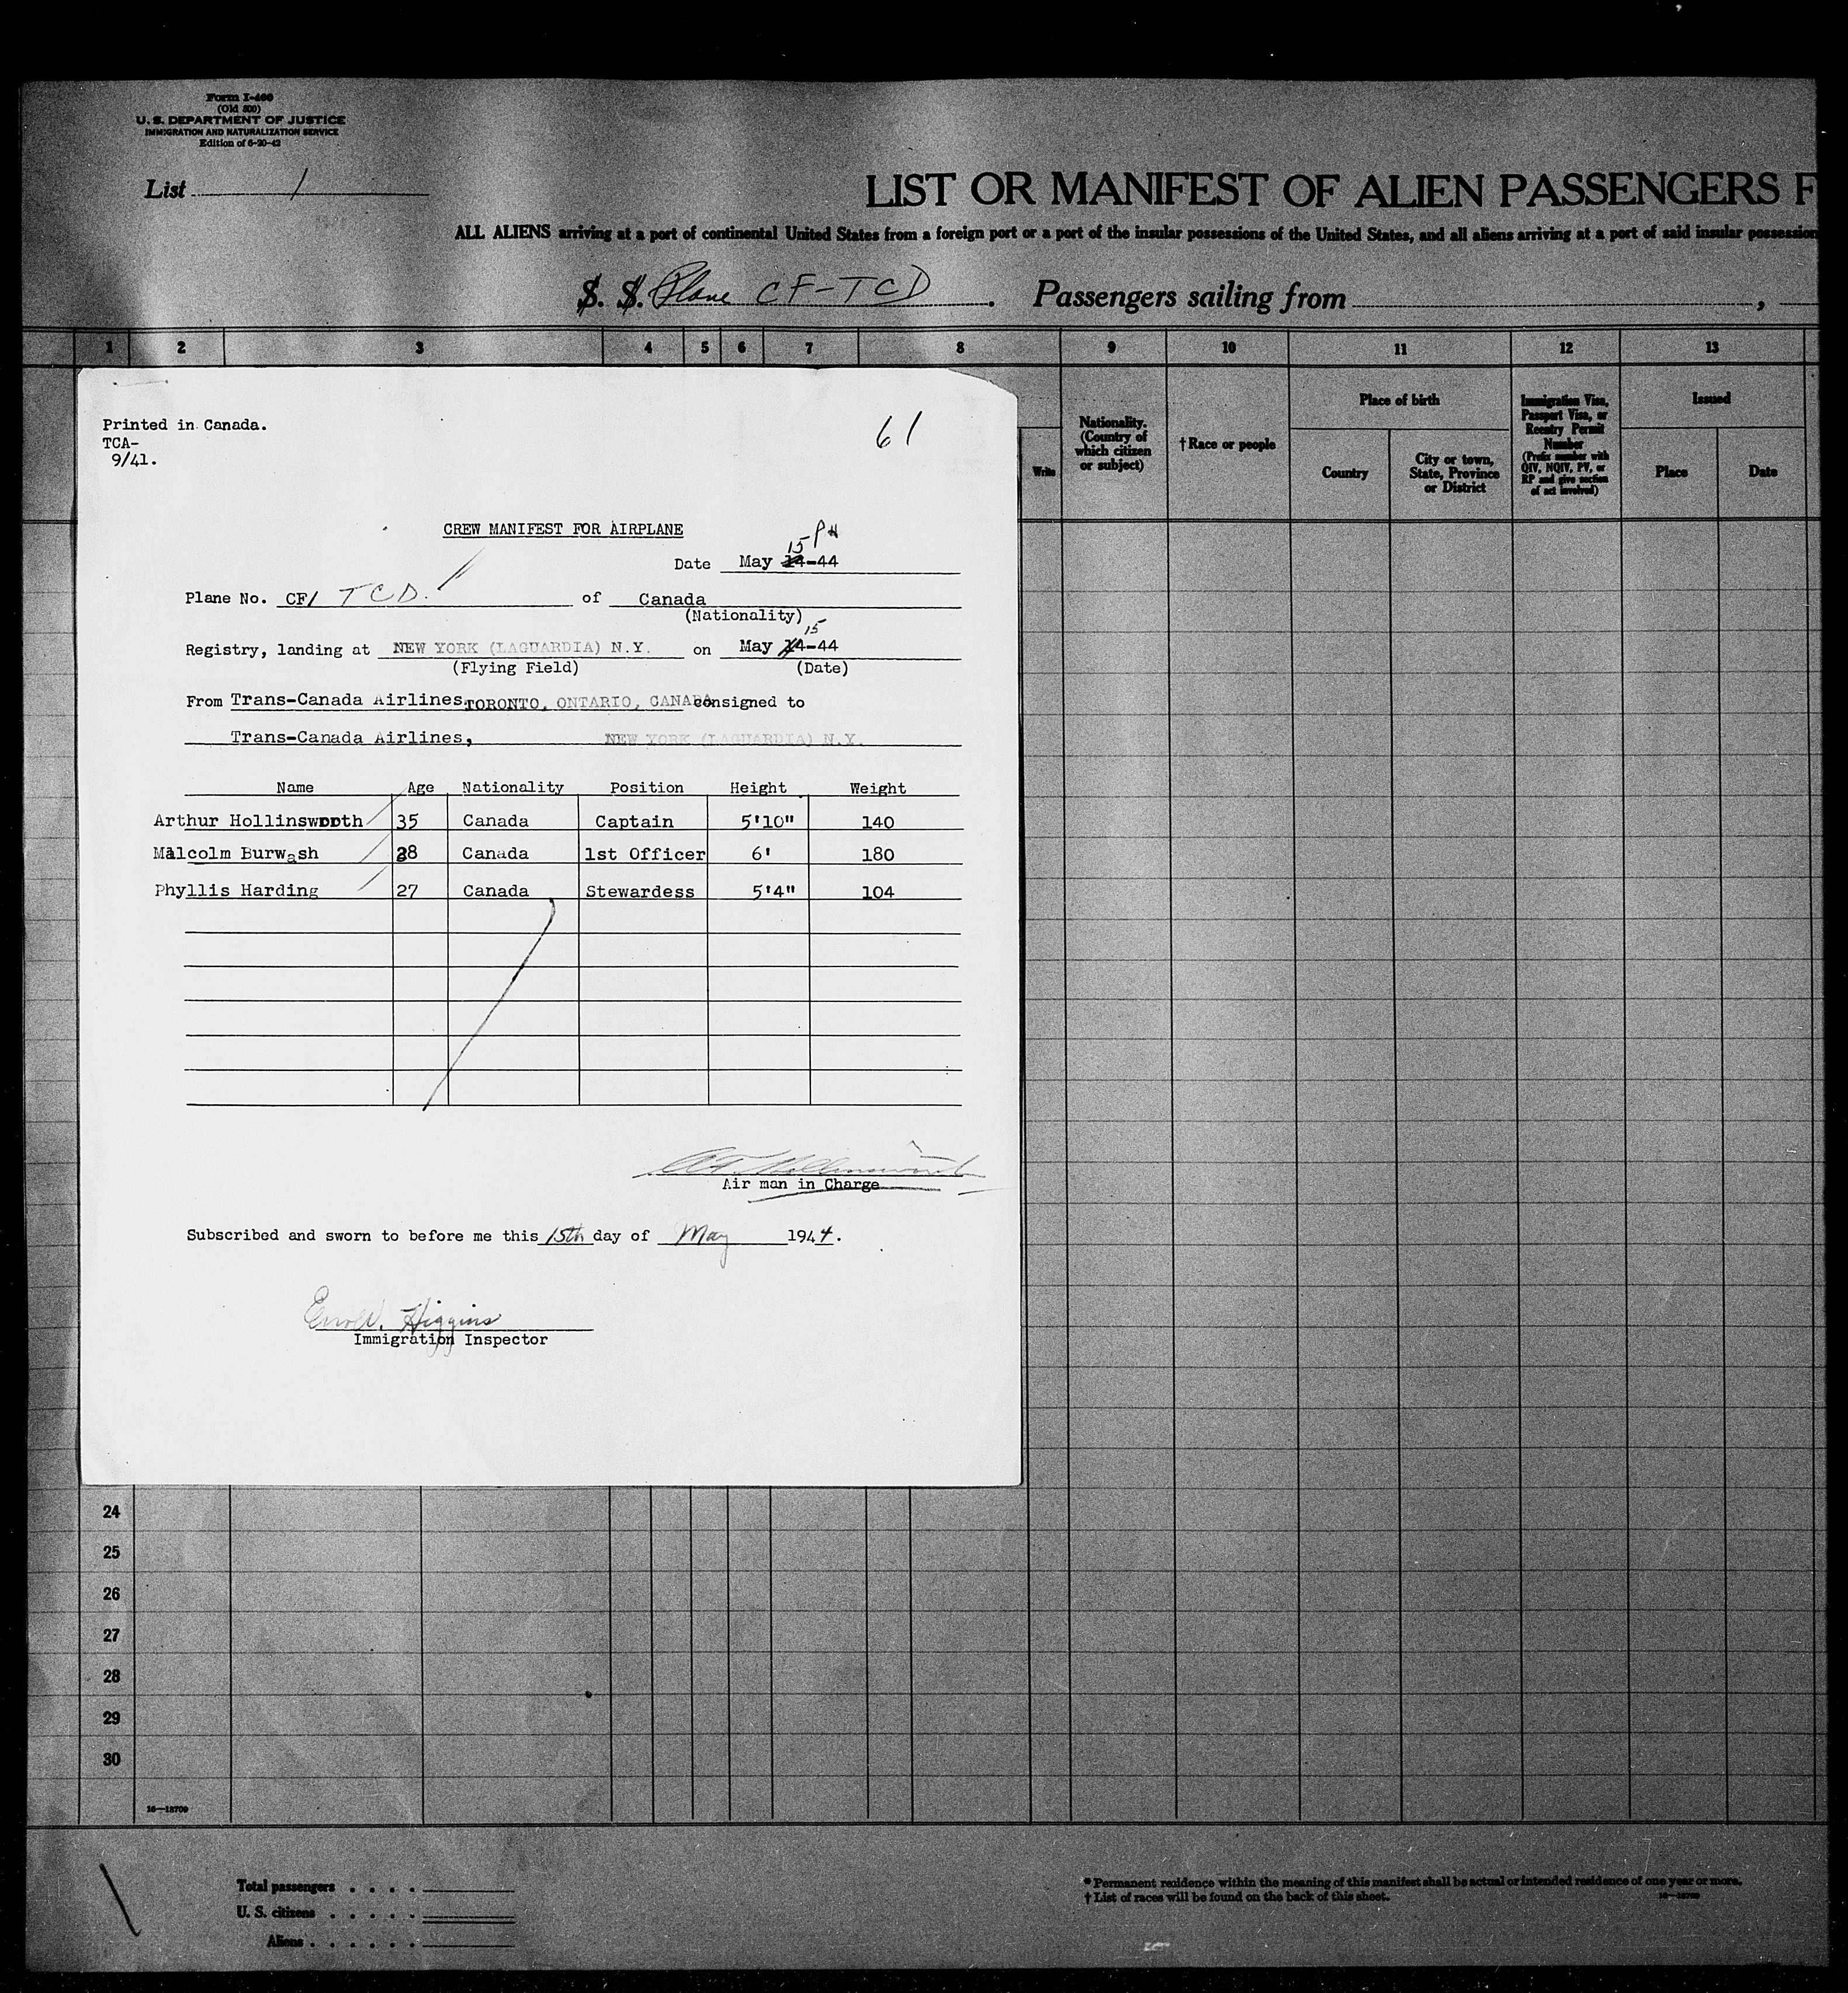 Form I-466
(Old 500)
U. S. DEPARTMENT OF JUSTICE
IMMIGRATION AND NATURALIZATION SERVICE
Edition of 6-20-42
List 1
LIST OR MANIFEST OF ALIEN PASSENGERS F
ALL ALIENS arriving at a port of continental United States from a foreign port or a port of the insular possessions of the United States, and all aliens arriving at a port of said insular possession
S. S. Plane CF-TCD . Passengers sailing from ,
1 2 3 4 5 6 7 8 9 10 11 12 13
Write
Nationality.
(Country of
which citizen
or subject)
† Race or people
Place of birth
Country
City or town,
State, Province
or District
Immigration Visa,
Passport Visa, or
Reentry Permit
Number
(Prefix number with
QIV, NQIV, PV, or
RP and give section
of act involved)
Issued
Place
Date
Printed in Canada.
TCA-
9/41.
61
CREW MANIFEST FOR AIRPLANE
15 PM
Date May 14-44
Plane No. CF/ TCD. of Canada
(Nationality)
15
Registry, landing at NEW YORK (LAGUARDIA) N.Y. on May 14-44
(Flying Field) (Date)
From Trans-Canada Airlines, TORONTO, ONTARIO, CANADA consigned to
Trans-Canada Airlines, NEW YORK (LAGUARDIA) N.Y.
Name Age Nationality Position Height Weight
Arthur Hollinsworth 35 Canada Captain 5'10" 140
Malcolm Burwash 28 Canada 1st Officer 6' 180
Phyllis Harding 27 Canada Stewardess 5'4" 104
Air man in Charge
Subscribed and sworn to before me this 15th day of May 1944.
Higgins
Immigration Inspector
24
25
26
27
28
29
30
16—13709
Total passengers . . . .
U. S. citizens . . . . .
Aliens . . . . . .
* Permanent residence within the meaning of this manifest shall be actual or intended residence of one year or more.
† List of races will be found on the back of this sheet.
16—13709